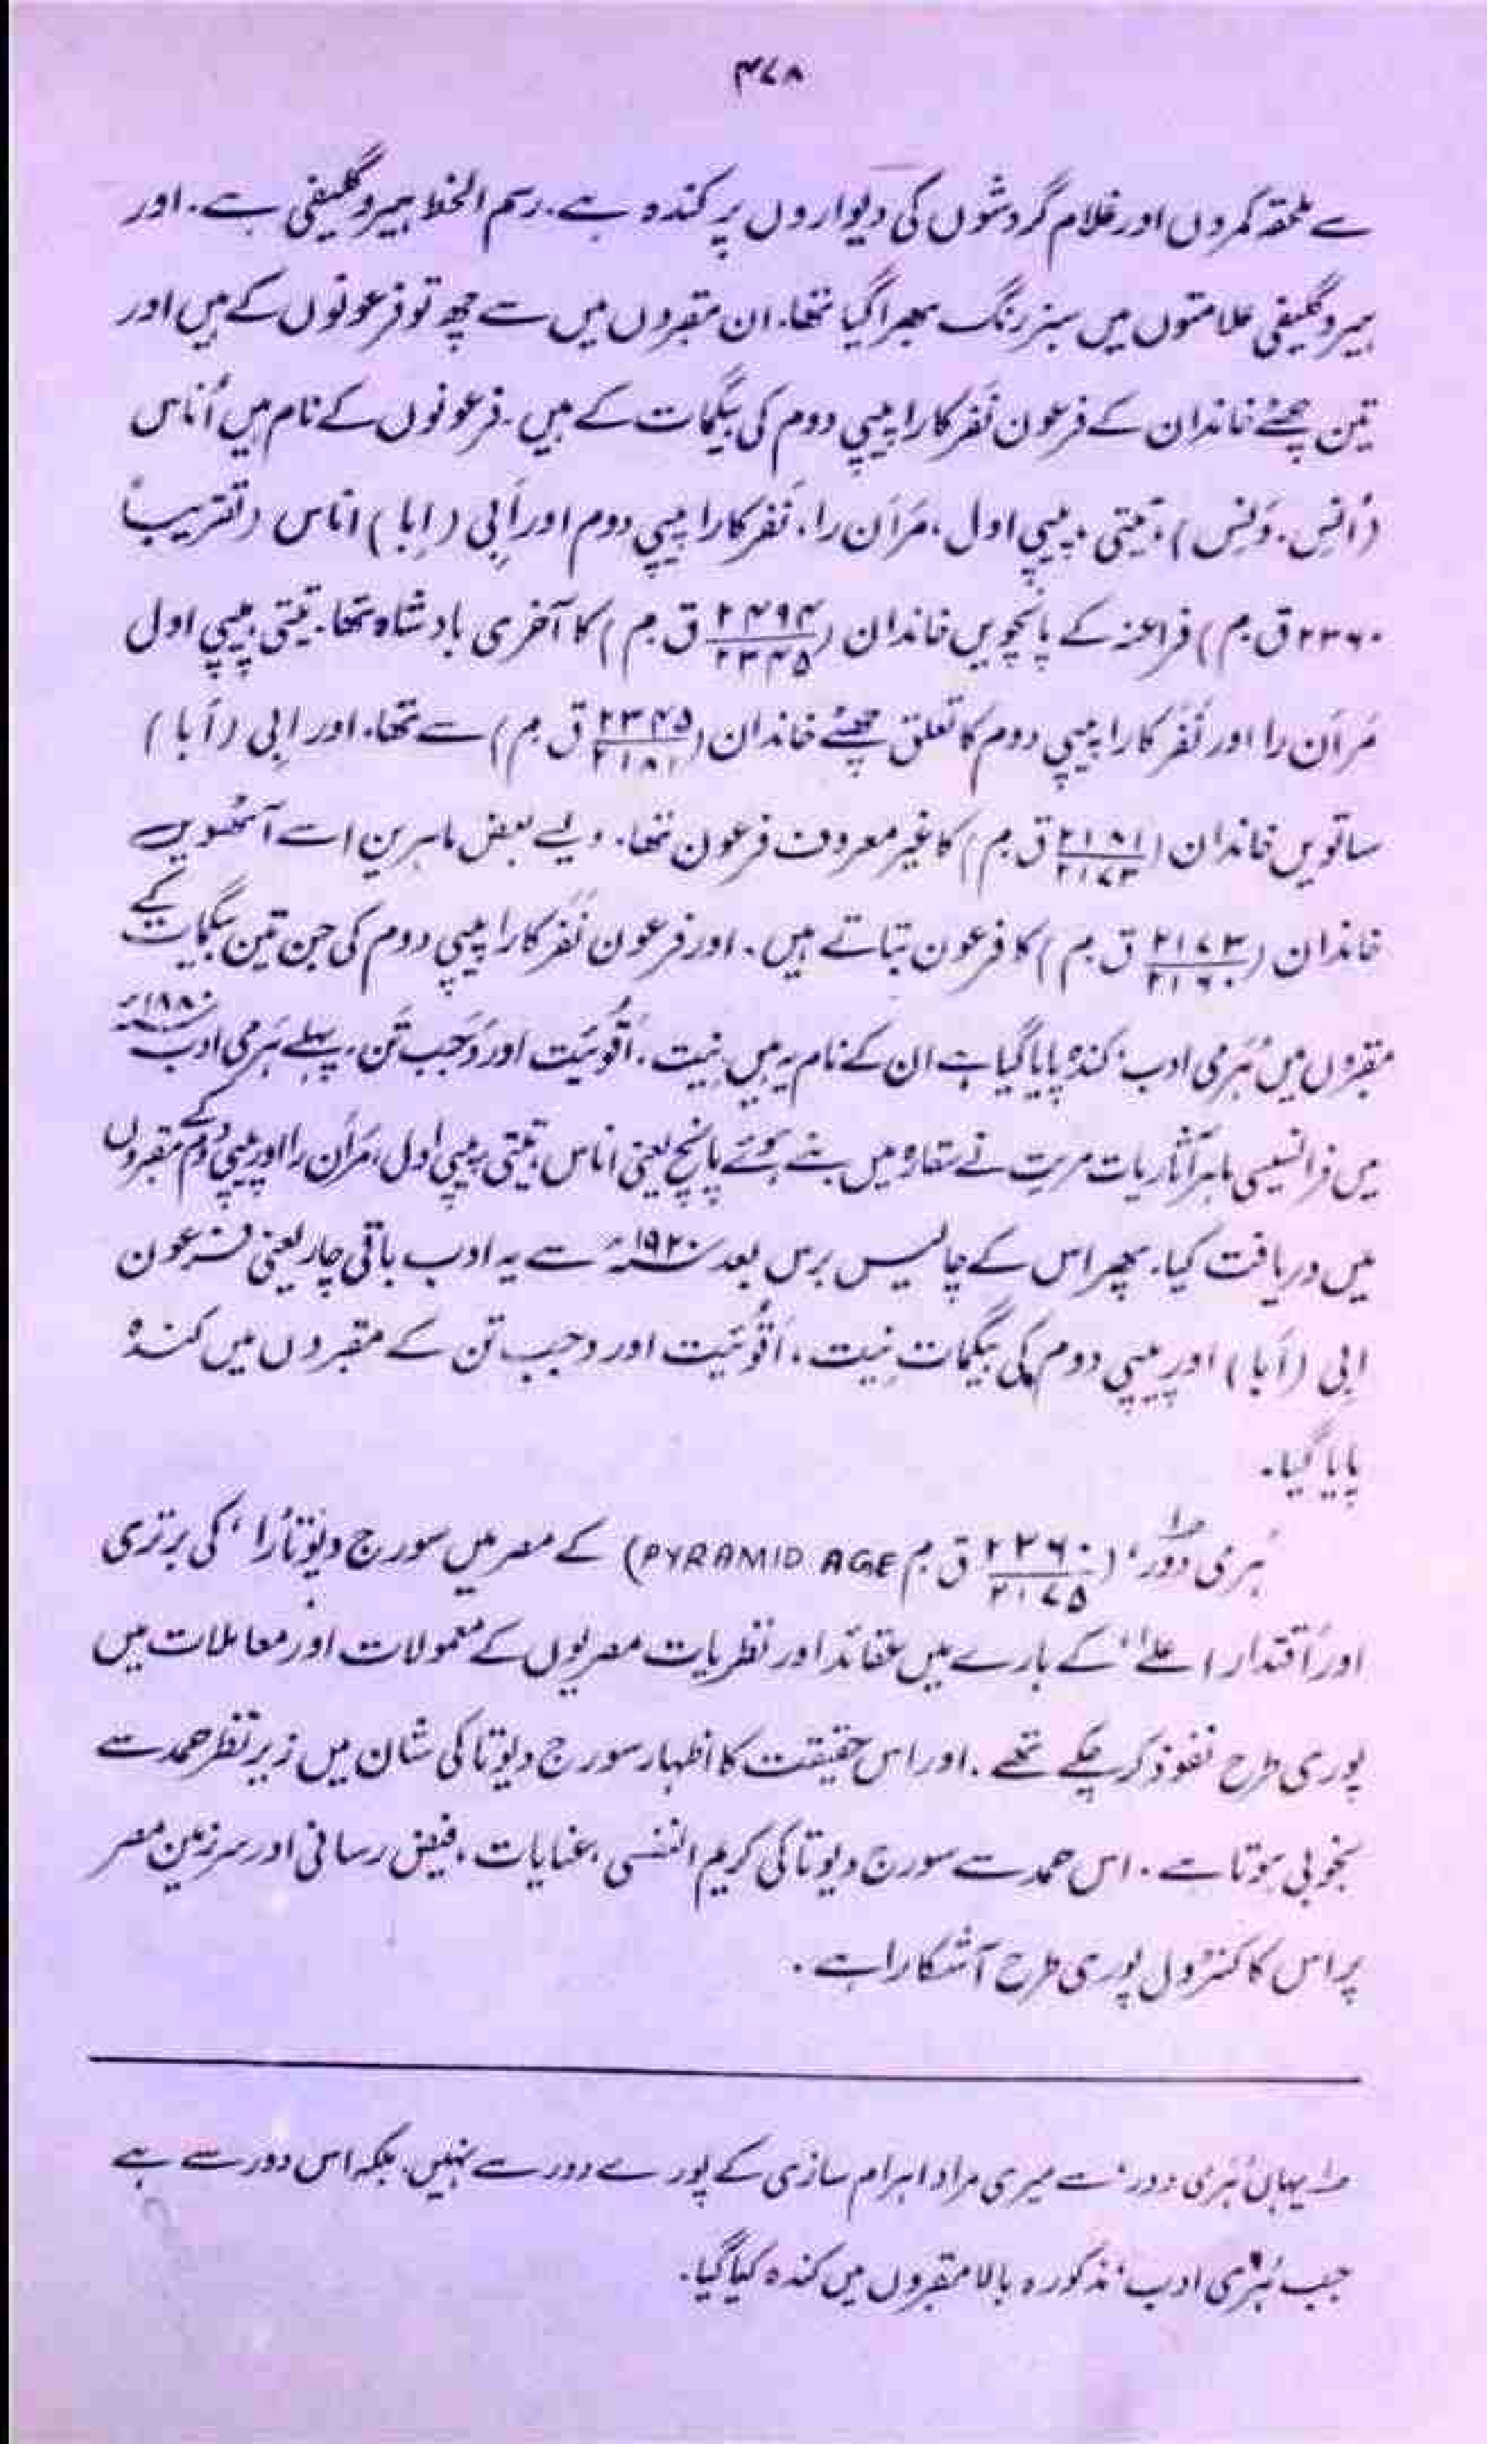 ۴۷۸
سے ملحقہ کمروں اور غلام گردشوں کی دیواروں پر کندہ ہے۔ رسم الخط ہیروگلیفی ہے۔ اور
ہیروگلیفی علامتوں میں سبز رنگ بھرا گیا تھا۔ ان مقبروں میں سے چھ تو فرعونوں کے ہیں اور
تین چھٹے خاندان کے فرعون نَفَرکارا پیپی دوم کی بیگمات کے ہیں۔ فرعونوں کے نام ہیں اُناس
(اُنِس۔ وَنِس)، تیتی، پیپی اول، مَراَن را، نَفَرکارا پیپی دوم اور اَبی (اِبا) اناس (تقریباً
۲۳۶۰ ق۔م) فراعنہ کے پانچویں خاندان (۲۴۹۴/۲۳۴۵ ق۔م) کا آخری بادشاہ تھا۔ تیتی، پیپی اول
مَراَن را اور نَفَرکارا پیپی دوم کا تعلق چھٹے خاندان (۲۳۴۵/۲۱۸۱ ق۔م) سے تھا۔ اور اِبی (اَبا)
ساتویں خاندان (۲۱۸۱/۲۱۷۳ ق۔م) کا غیر معروف فرعون تھا۔ ویسے بعض ماہرین اسے آٹھویں
خاندان (۲۱۷۳/۲۱۶۰ ق۔م) کا فرعون بتاتے ہیں۔ اور فرعون نَفَرکارا پیپی دوم کی جن تین بیگمات کے
مقبروں میں ’ہَرمی ادب‘ کندہ پایا گیا ہے ان کے نام یہ ہیں نِیت، اَقُوئیت اور وَجِب تَن۔ پہلے ہَرمی ادب ۱۸۸۰ء
میں فرانسیسی ماہر آثاریات مریت نے سقارہ میں بنے ہوئے پانچ یعنی اناس، تیتی، پیپی اول، مَراَن را اور پیپی دوم کے مقبروں
میں دریافت کیا۔ پھر اس کے چالیس برس بعد ۱۹۲۰ء سے یہ ادب باقی چار یعنی فرعون
اِبی (اَبا) اور پیپی دوم کی بیگمات نِیت، اَقُوئیت اور وجب تن کے مقبروں میں کندہ
پایا گیا۔
’ہرمی دَور‘ ۱ (۲۳۶۰/۲۱۷۵ ق۔م PYRAMID AGE) کے مصر میں سورج دیوتا ’را‘ کی برتری
اور ’اقتدار اعلےٰ‘ کے بارے میں عقائد اور نظریات مصریوں کے معمولات اور معاملات میں
پوری طرح نفوذ کر چکے تھے۔ اور اس حقیقت کا اظہار سورج دیوتا کی شان میں زیرِ نظر حمد سے
بخوبی ہوتا ہے۔ اس حمد سے سورج دیوتا کی کریم النفسی، عنایات، فیض رسانی اور سرزمین مصر
پر اس کا کنٹرول پوری طرح آشکارا ہے۔
۱ یہاں ’ہَرمی دور‘ سے میری مراد اہرام سازی کے پورے دور سے نہیں۔ بلکہ اس دور سے ہے
جب ’ہَرمی ادب‘ مذکورہ بالا مقبروں میں کندہ کیا گیا۔